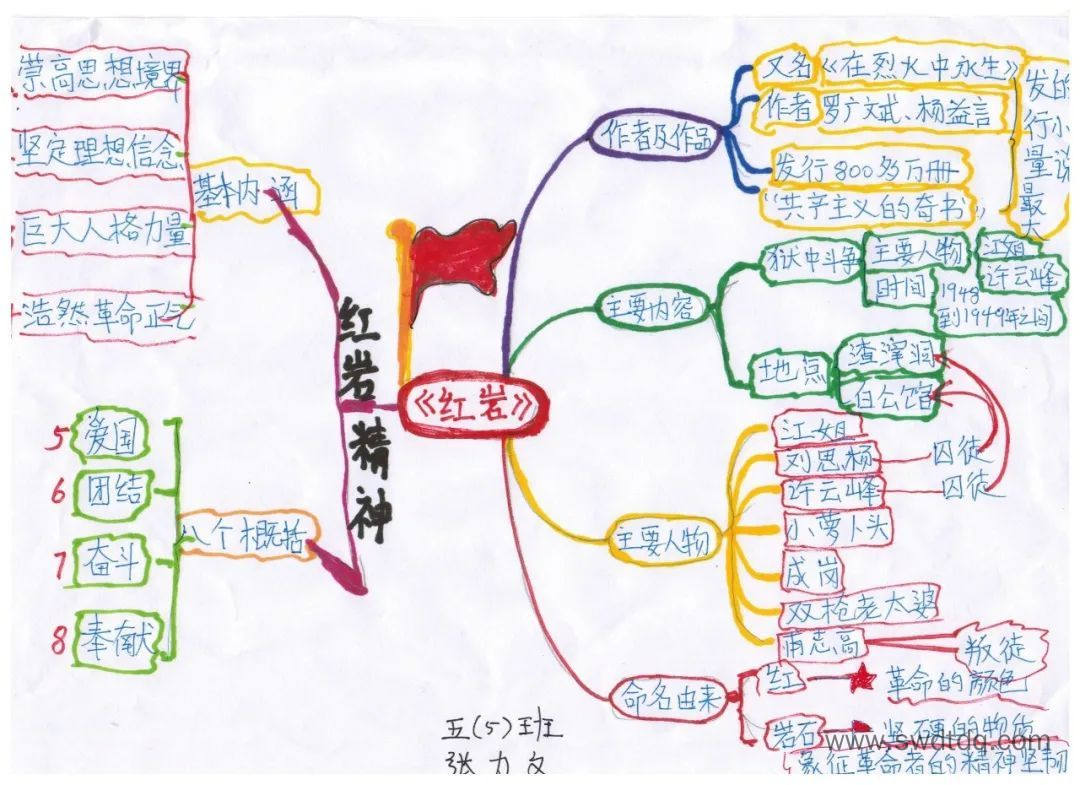 《红岩》
作者及作品
又名《在烈火中永生》
作者 罗广斌、杨益言
发行800多万册
“共产主义的奇书”
发行量最大
的小说
主要内容
狱中斗争
主要人物
江姐
许云峰
时间
1948
到1949年之间
地点
渣滓洞
白公馆
主要人物
江姐
刘思杨
囚徒
许云峰
囚徒
小萝卜头
成岗
双枪老太婆
甫志高
叛徒
命名由来
红
革命的颜色
岩石
坚硬的物质
象征革命者的精神坚韧
红岩精神
基本内涵
崇高思想境界
坚定理想信念
巨大人格力量
浩然革命正气
八个概括
5 爱国
6 团结
7 奋斗
8 奉献
五(5)班
张力文
www.swdtdq.com